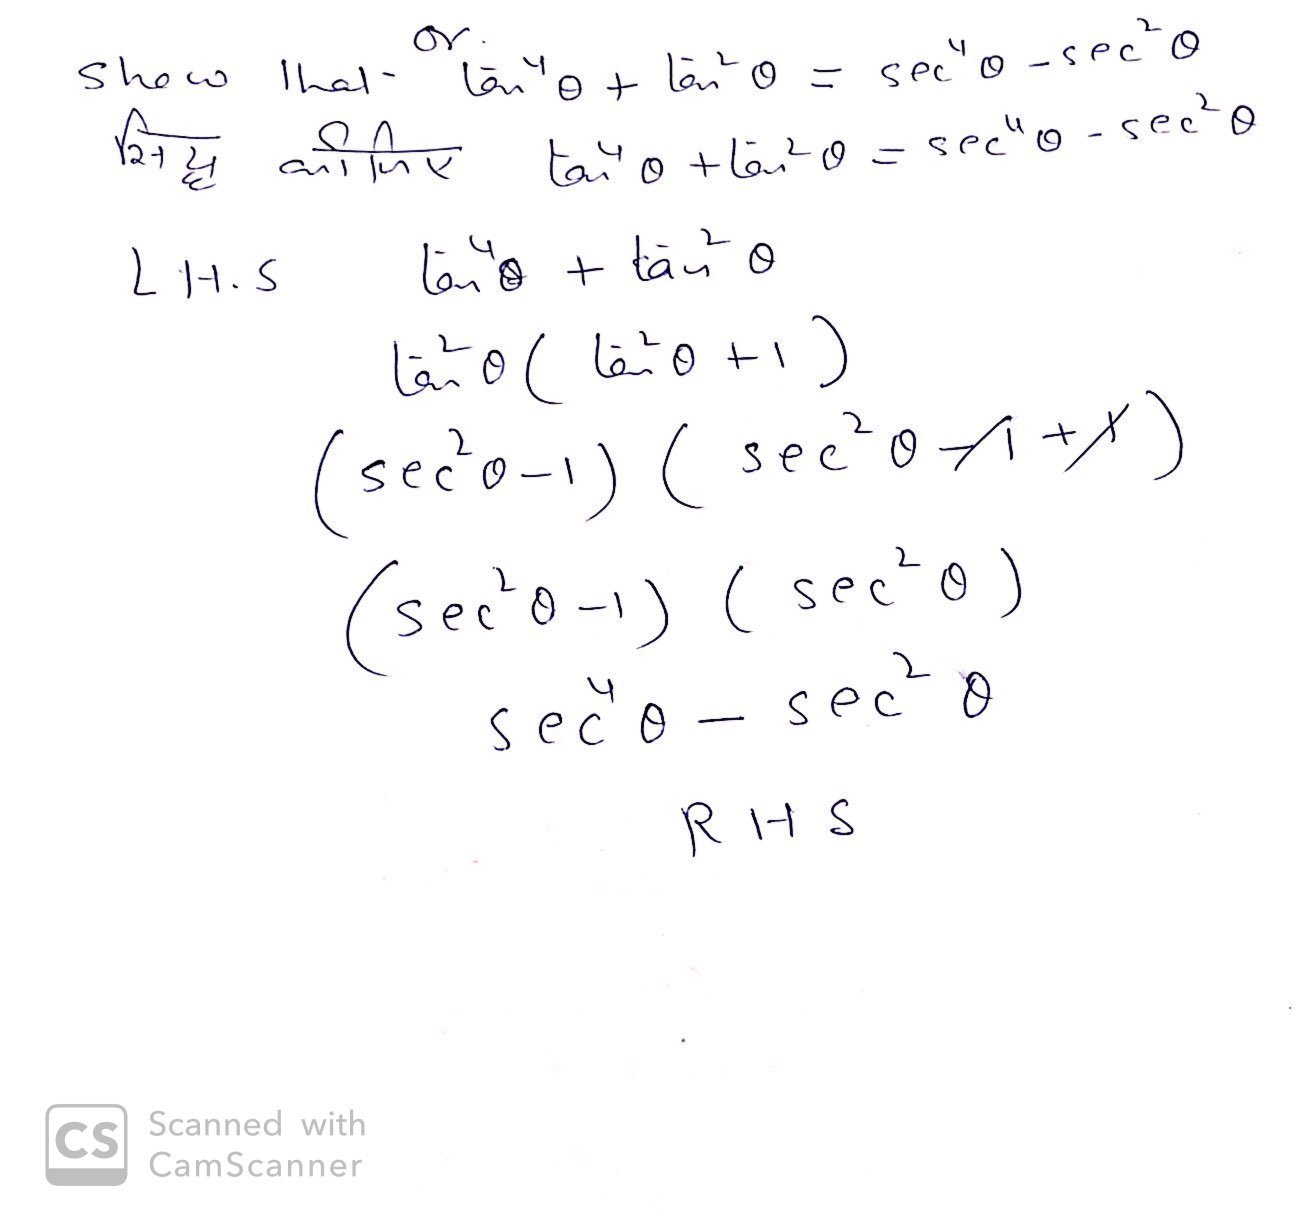 or.
Show that tan⁴θ + tan²θ = sec⁴θ - sec²θ
सिद्ध कीजिए tan⁴θ + tan²θ = sec⁴θ - sec²θ
L H.S tan⁴θ + tan²θ
tan²θ ( tan²θ + 1 )
(sec²θ - 1) ( sec²θ - 1 + 1 )
(sec²θ - 1) ( sec²θ )
sec⁴θ - sec²θ
R H S
CS Scanned with
CamScanner